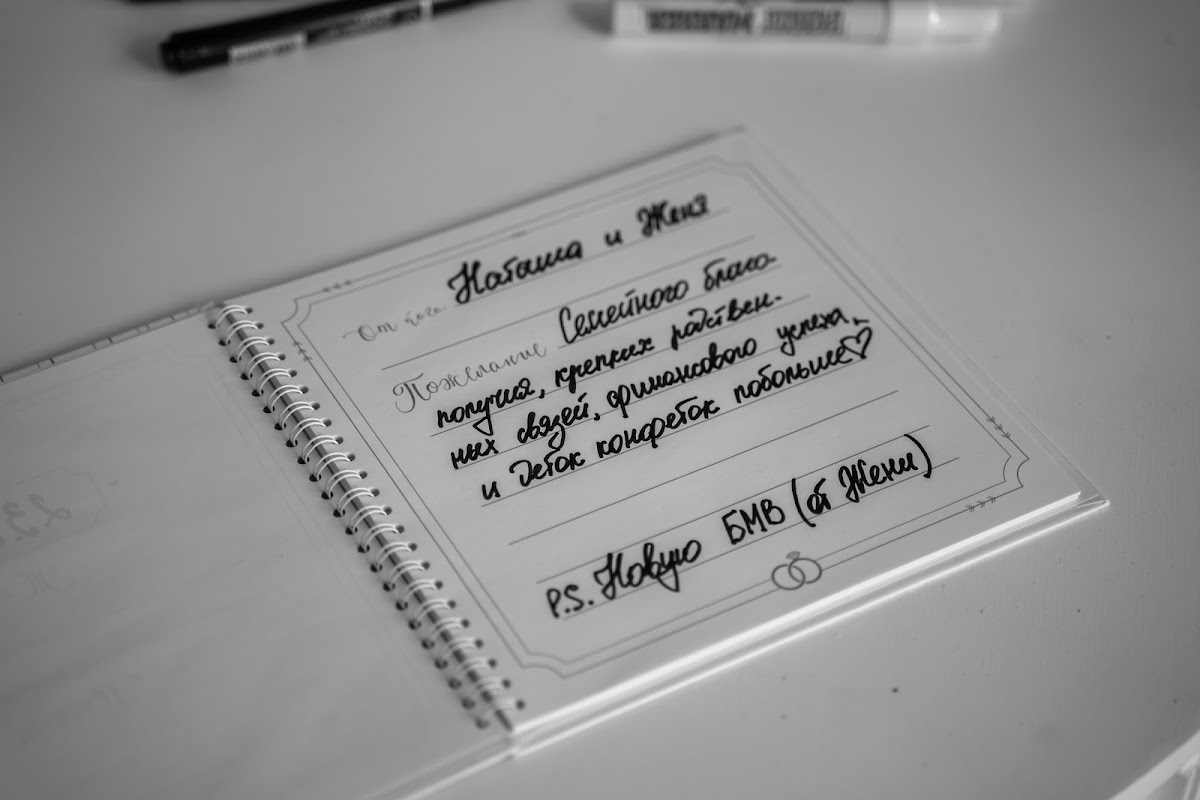 От кого Наташа и Женя
Пожелание Семейного благо
получия, крепких родствен-
ных связей, финансового успеха,
и деток конфеток побольше♡
P.S. Новую БМВ (от Жени)